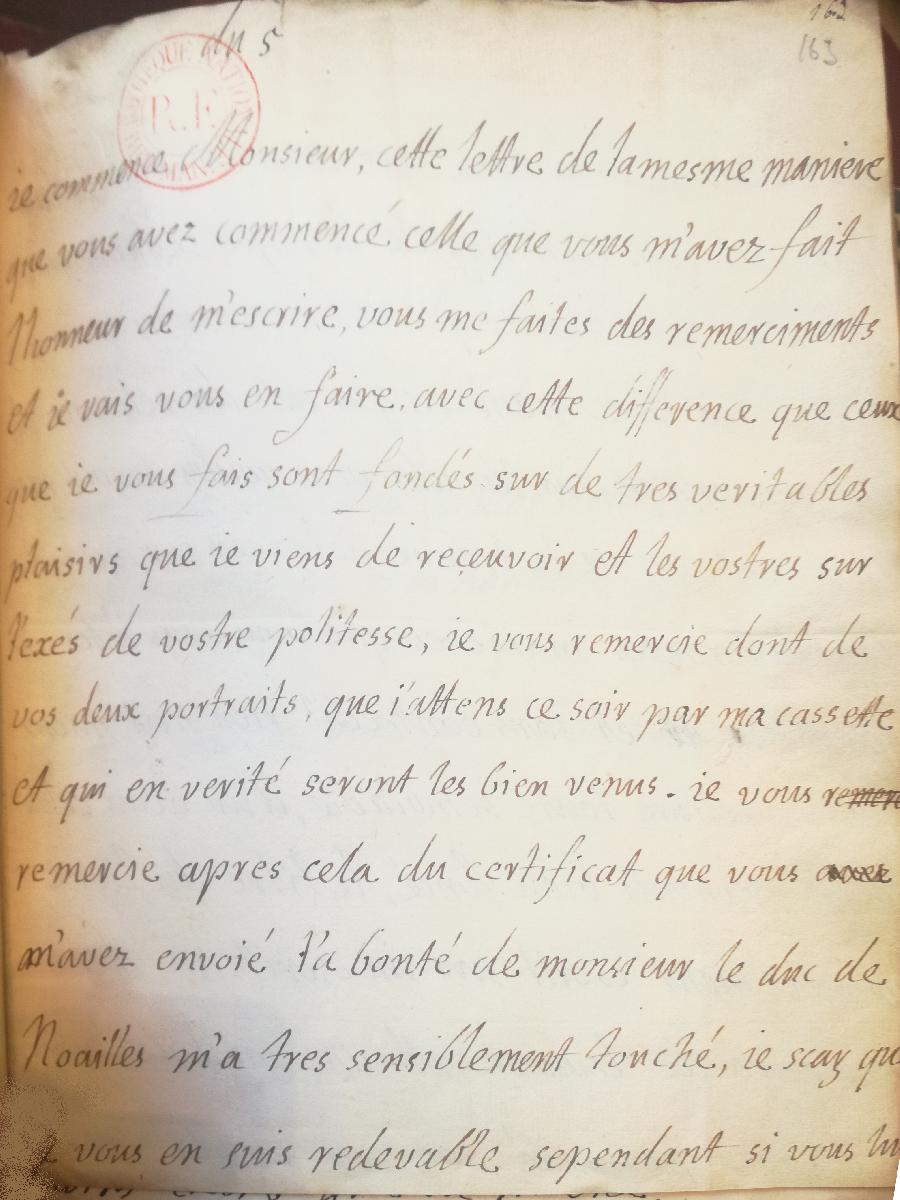 162
163
du 5
BIBLIOTHEQUE NATIONALE R.F. MAN.
ie commence Monsieur, cette lettre de lamesme maniere
que vous avez commencé celle que vous m'avez fait
l'honneur de m'escrire, vous me faites des remerciments
et ie vais vous en faire, avec cette difference que ceux
que ie vous fais sont fondés sur de tres veritables
plaisirs que ie viens de reçeuvoir et les vostres sur
l'exés de vostre politesse, ie vous remercie dont de
vos deux portraits, que i'attens ce soir par ma cassette
et qui en verité seront les bien venus. ie vous remer
remercie apres cela du certificat que vous avez
m'avez envoié l'a bonté de monsieur le duc de
Noailles m'a tres sensiblement touché, ie scay que
vous en suis redevable sependant si vous lu